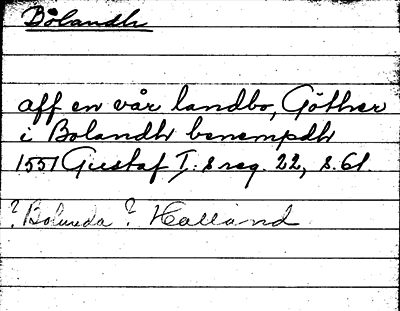 Bölandh
aff en vår landbo, Göther
i Bolandh benempdh
1551 Gustaf I:s reg. 22, s. 61.
? Bolunda ? Halland